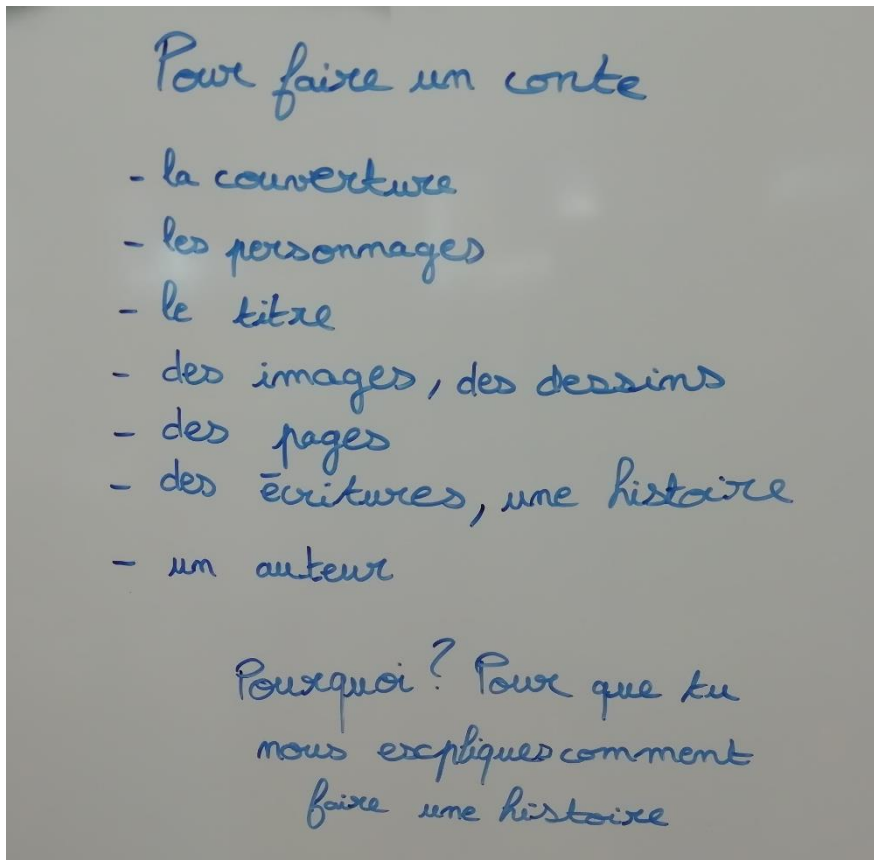 Pour faire un conte
- la couverture
- les personnages
- le titre
- des images, des dessins
- des pages
- des écritures, une histoire
- un auteur
Pourquoi ? Pour que tu
nous expliques comment
faire une histoire